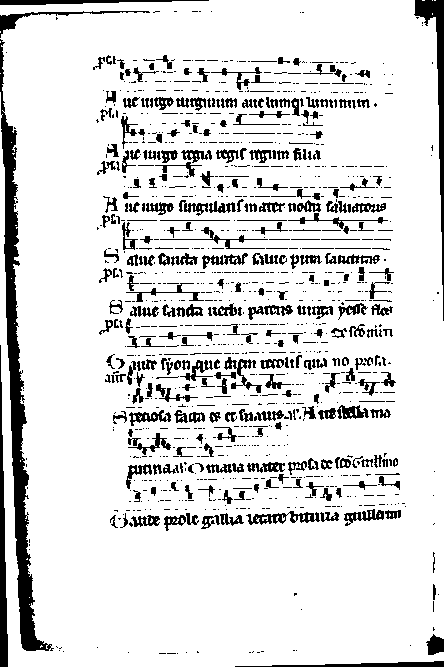 psa
Aue uirgo uirginum aue lumen luminum .
psa
Aue uirgo regia regis regum filia
psa
Aue uirgo singularis mater nostri saluatoris
psa
Salue sancta puritas salue pura sanctitas .
psa
Salue sancta uerbi parens uirga yesse flos
psa
Gaude syon que diem recolis qua no prosa .
ant
Speciosa facta es et suauis . Aue stella ma
maria mater prosa de sco Guillmo
Gaude prole gallia letare guillerm